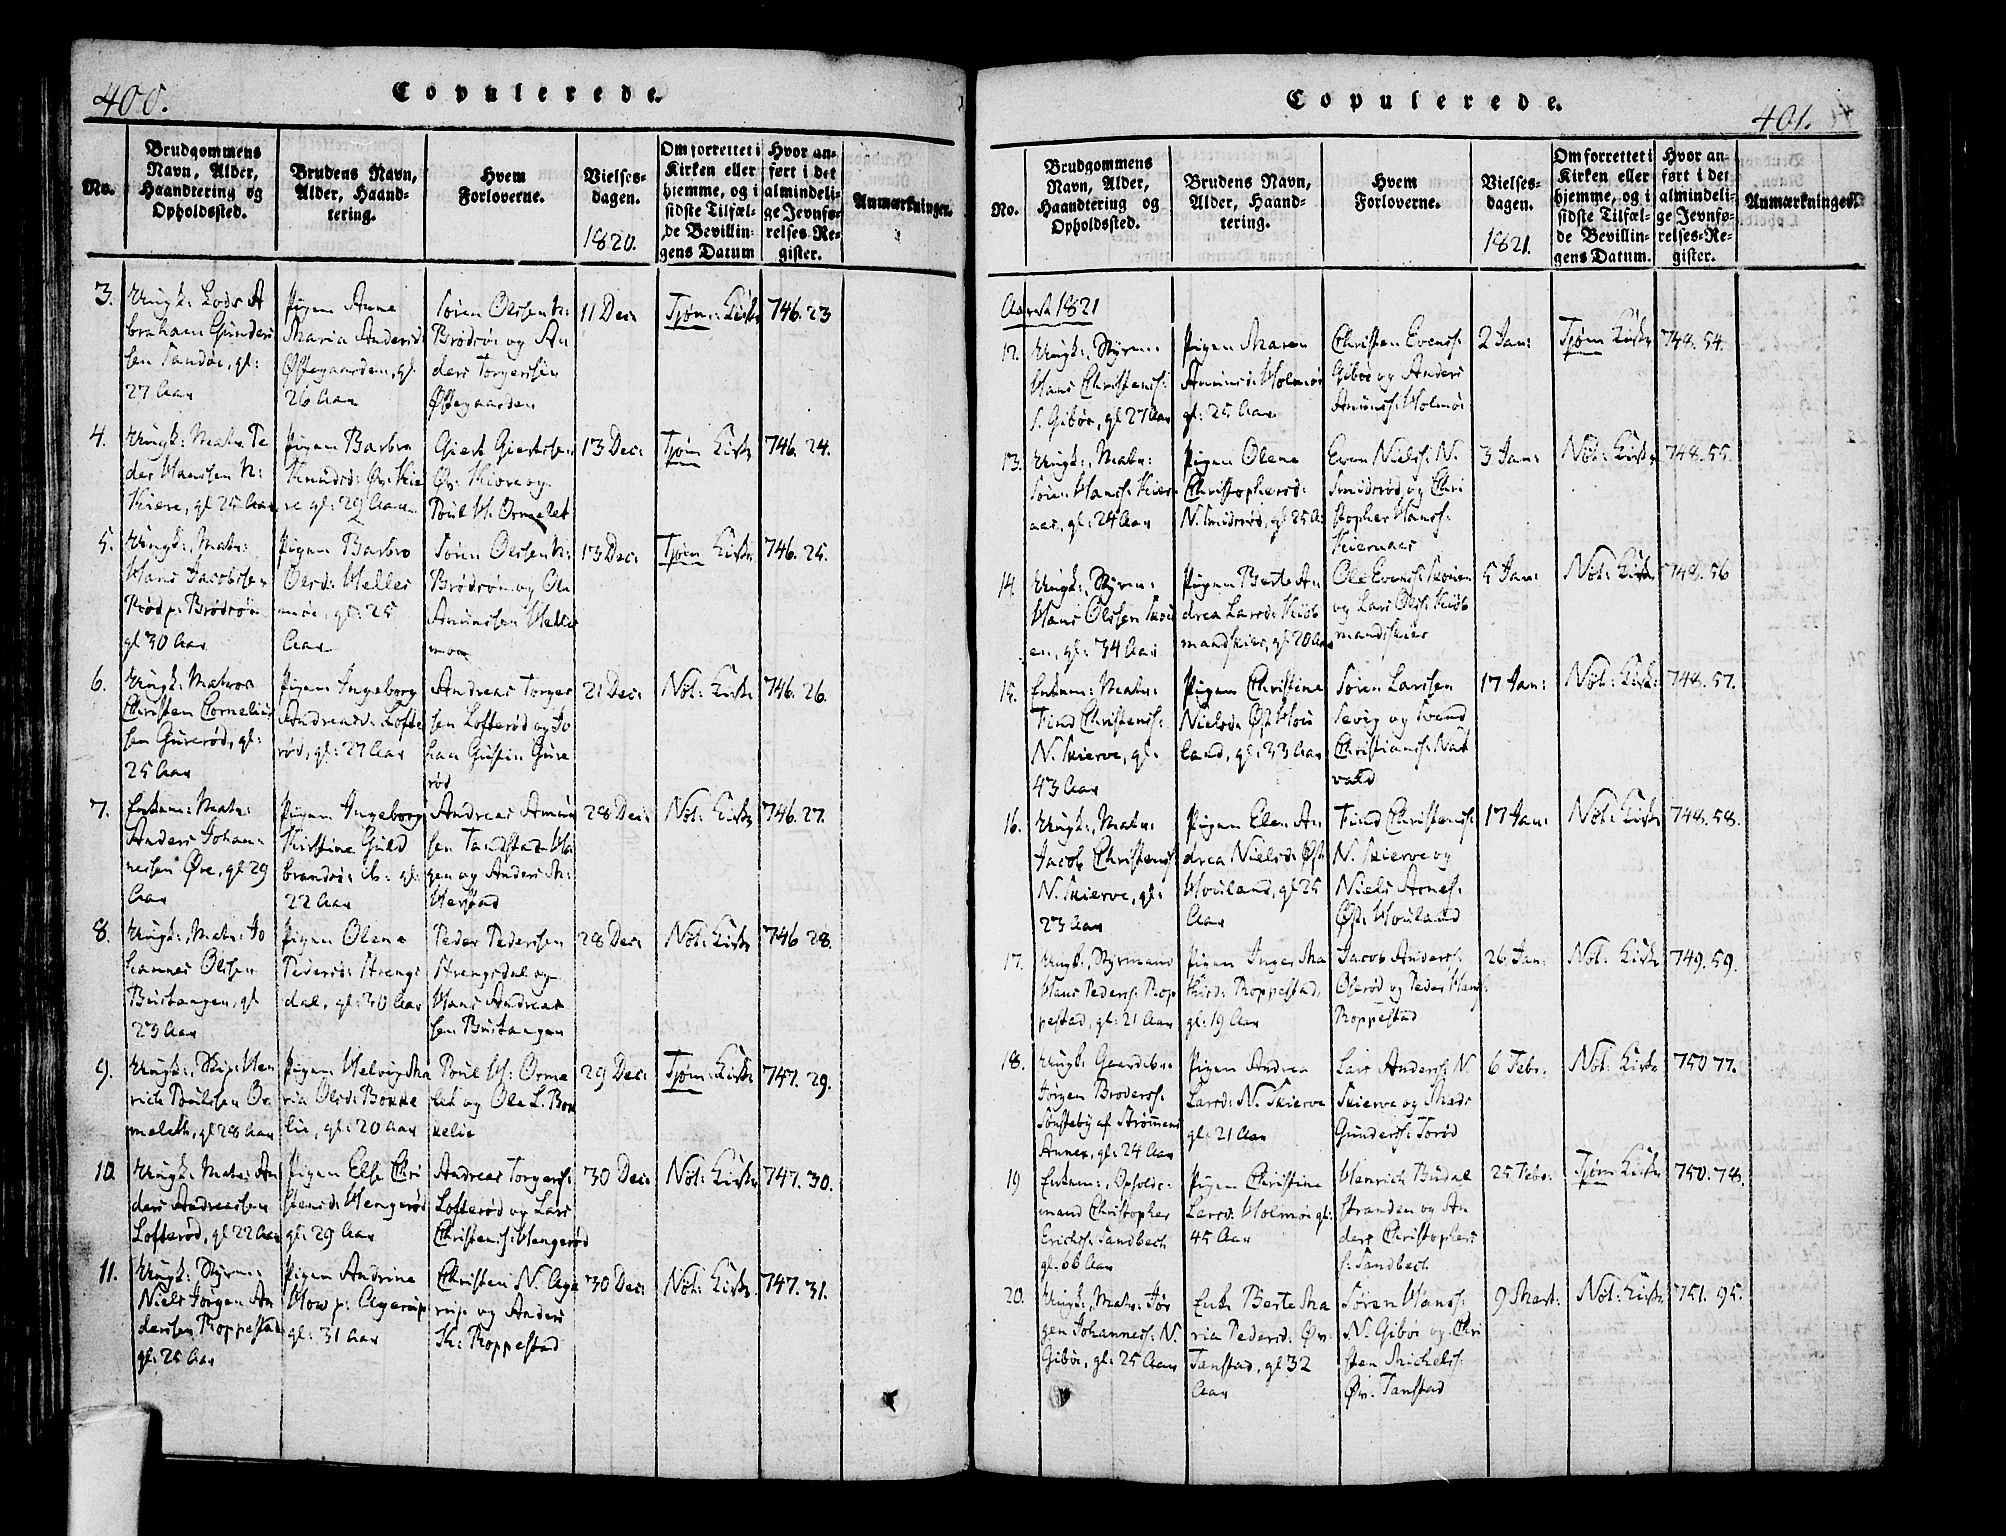 400.
Copulerede.
No.
Brudgommens
Navn, Alder,
Haandtering og
Opholdssted.
Brudens Navn,
Alder, Haand-
tering.
Hvem
Forloverne.
Vielses-
dagen.
1820.
Om forrettet i
Kirken eller
hjemme, og i
sidste Tilfæl-
de Bevillin-
gens Datum
Hvor an-
ført i det
almindeli-
ge Jevnfø-
relses-Re-
gister.
Anmærkninger.
3.
Ungk: Lods A
braham Gunder
sen Sandøe, gl:
27 Aar
Pigen Anne
Maria Andersd:
Østegaarden, gl.
26 Aar
Søren Olssen N:
Brødrøe og An
ders Torgerssen
Østegaarden
11 Dec:
Tjøm: Kirke
746. 23
4.
Ungk: Matr: Pe
der Hanssen N:
Kiære, gl 25 Aar
Pigen Barbro
Knudsd: Øv: Kiæ
re gl: 29 Aar
Giert Giertssen
Øv: Kiære og
Poul H. Ormelet
13 Dec:
Tjøm Kirke
746. 24.
5.
Ungk:, Matr:
Hans Jacobssen
Rød p: Brødrøe
gl 30 Aar
Pigen Barbro
Olsd: Helles
moe, gl: 25
Aar
Søren Olssen N:
Brødrøe og Ole
Amunssen Helles
moe
13 Dec:
Tjøm Kirke
746. 25.
6.
Ungk: Matros
Christen Cornelius
sen Gunerød, gl:
25 Aar
Pigen Ingeborg
Andreasd: Lofte
rød, gl: 27 Aar
Andreas Torger
sen Lofterød og Jo
han Gustin Gune
rød
21 Dec:
Nøt: Kirke
746. 26.
7.
Enkem: Matr:
Anders Johan-
nessen Øre, gl 29
Aar
Pigen Ingeborg
Kirstine Guld
brandsd: ib: gl:
22 Aar
Andreas Amun
sen Tandstad Ha
gen og Anders M:
Hersstad
28 Dec:
Nøt: Kirke
746. 27.
8.
Ungk:, Matr: Jo
hannes Olssen
Bustangen, gl
23 Aar
Pigen Olene
Pedersd: Strengs
dal, gl: 30 Aar
Peder Pederssen
Strengsdal og
Hans Andreas
sen Bustangen
28 Dec:
Nøt: Kirke
746 28.
9.
Ungk:, Skip: Hen
rich Poulssen Or
meleth, gl 28 Aar
Pigen Helvig Ma
ria Olsd: Bokke
lie, gl: 20 Aar
Poul H: Orme
let og Ole L. Bok
kelie
29 Dec:
Tjøm: Kirke
747. 29.
10.
Ungk: Matr: An
ders Andreassen
Lofterød, gl 22 Aar
Pigen Else Chri
stensd: Hengerød
gl: 29 Aar
Andreas Torgerss:
Lofterød og Lars
Christenss: Hengerød
30 Dec:
Nøt: Kirke
747. 30.
11.
Ungk: Styrm:
Niels Jørgen An
derssen Roppestad
gl: 25 Aar
Pigen Andrine
How p: Agerup
gl: 31 Aar
Christen N. Age
rup og Anders
Th: Roppestad
30 Dec:
Nøt: Kirke
747. 31.
401.
Copulerede.
No.
Brudgommens
Navn, Alder,
Haandtering og
Opholdssted.
Brudens Navn,
Alder, Haand-
tering.
Hvem
Forloverne.
Vielses-
dagen.
1821.
Om forrettet i
Kirken eller
hjemme, og i
sidste Tilfæl-
de Bevillin-
gens Datum.
Hvor an-
ført i det
almindeli-
ge Jevnfø-
relses-Re-
gister.
Anmærkninger.
Aaret 1821
12.
Ungk:, Styrm:
Hans Christenss:
S. Gibøe, gl 27 Aar
Pigen Maren
Amunsd: Holmøe
gl: 25 Aar
Christen Evenss:
Gibøe og Anders
Amunss: Holmøe
2 Jan:
Tjøm Kirke
748. 54.
13.
Ungk:, Matr:
Søren Hanss: Kier
aas, gl: 24 Aar
Pigen Olene
Christophersd:
N. Smidsrød, gl 25 A:
Even Nielss: N.
Smidsrød, og Chri
stopher Hanss:
Kiernaas
3 Jan:
Nøt: Kirke
748. 55.
14.
Ungk:, Styrm:
Hans Olssen Skou
en, gl: 34 Aar
Pigen Berte An
drea Larsd: Kiøb
mandskier, gl 20 Aar
Ole Evenss: Skouen
og Lars Olss: Kiøb
mandskier
5 Jan:
Nøt: Kirke
748. 56
15.
Enkem: Matr:
Find Christenss:
N. Skierve, gl:
43 Aar
Pigen Christine
Nielsd: Øst Hou
land, gl: 33 Aar
Søren Larssen
Sevig og Svend
Christianss: Nat
vald
17 Jan:
Nøt: Kirke:
748. 57.
16.
Ungk:, Matr:
Jacob Christenss:
N. Skierve, gl:
23 Aar
Pigen Elen An
drea Nielsd: Øst
Houland, gl 25
Aar
Find Christenss:
N. Skierve og
Niels Arness:
Øst: Houland
17 Jan:
Nøt: Kirke
748. 58.
17.
Ungk:, Styrmand
Hans Pederss: Rop
pestad, gl: 21 Aar
Pigen Inger Ma
thisd: Roppestad,
gl: 19 Aar
Jacob Anderss:
Oserød og Peder Hans:
Roppestad
26 Jan:
Nøt: Kirke
749. 59.
18.
Ungk: Gaardbr:
Jørgen Broderss:
Sønsteby af Strømms
Annex, gl: 24 Aar
Pigen Andrea
Larsd: N. Skierve
gl: 21 Aar
Lars Anderss: N.
Skierve og Mads
Gunderss: Torød
6 Febr:
Nøt: Kirke
750 77.
19
Enkem:, Opholds-
mand Christopher
Erichss: Sandbech
gl. 66 Aar
Pigen Christine
Larsd: Holmøe gl:
45 Aar
Henrich Budal
stranden og An
ders Christophers
s: Sandbech
25 Febr:
Tjøm Kirke
750. 78.
20.
Ungk:, Matr: Jør
gen Johanness: N.
Gibøe, gl: 25 Aar
Enke Berte Ma
ria Pedersd: Øv:
Tanstad, gl 32
Aar
Søren Hanss:
N. Gibøe og Chri
sten Michelss:
Øv. Tanstad
9 Mart:
Nøt: Kirke
751. 95.